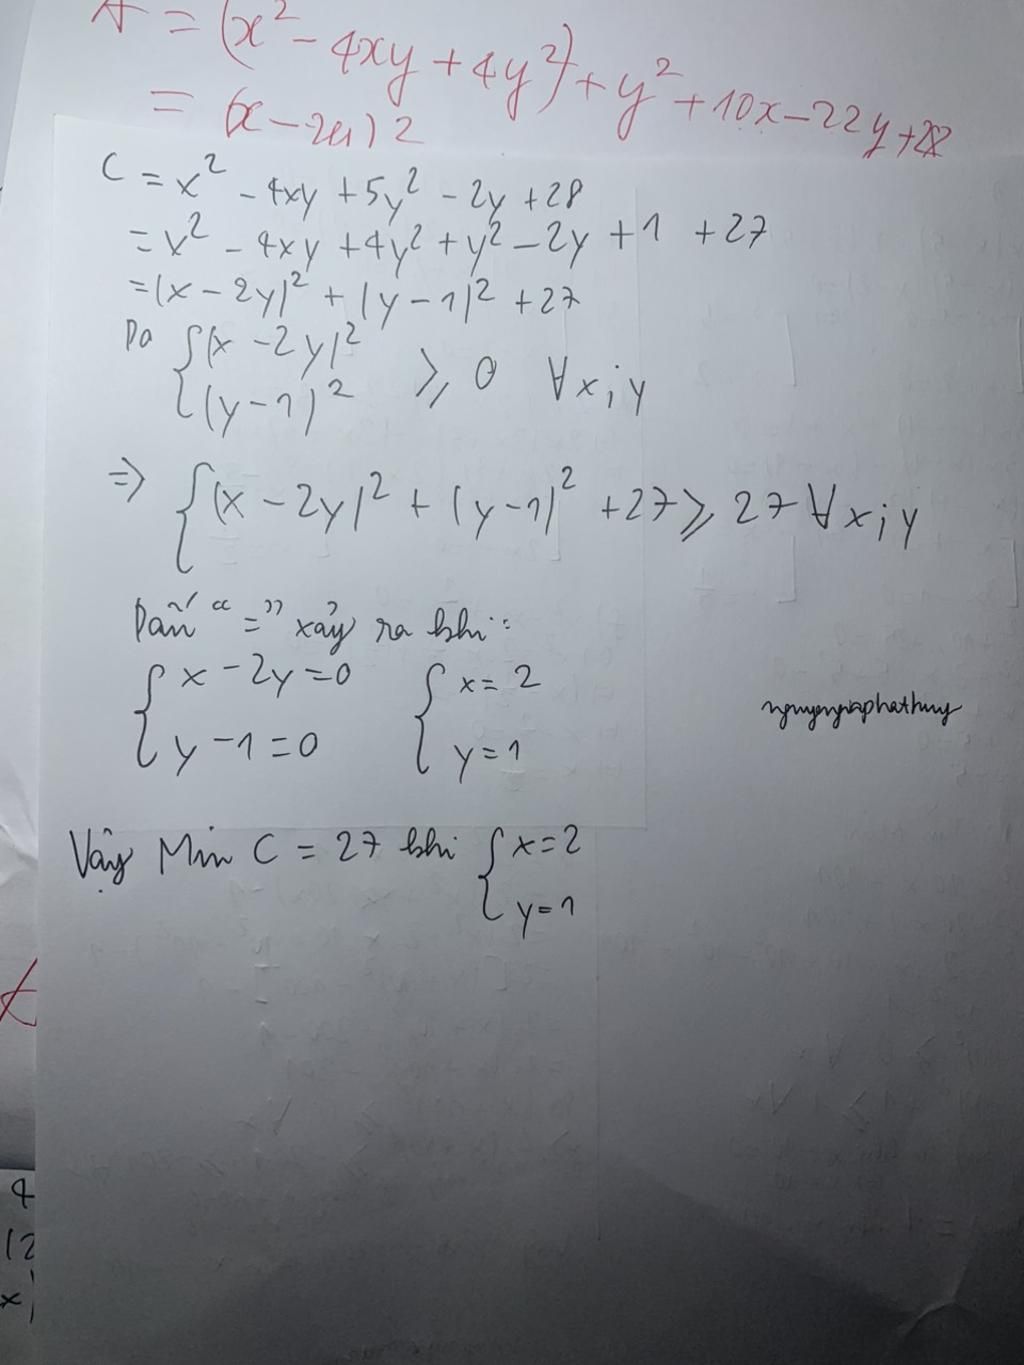 A = (x² - 4xy + 4y²) + y² + 10x - 22y + 28
= (x - 2y)²
C = x² - 4xy + 5y² - 2y + 28
= x² - 4xy + 4y² + y² - 2y + 1 + 27
= (x - 2y)² + (y - 1)² + 27
Do { (x - 2y)²
(y - 1)² ≥ 0 ∀ x; y
=> { (x - 2y)² + (y - 1)² + 27 ≥ 27 ∀ x; y
Dấu "=" xảy ra khi:
{ x - 2y = 0 { x = 2
y - 1 = 0 y = 1
Vậy Min C = 27 khi { x = 2
y = 1
4
(2
x)